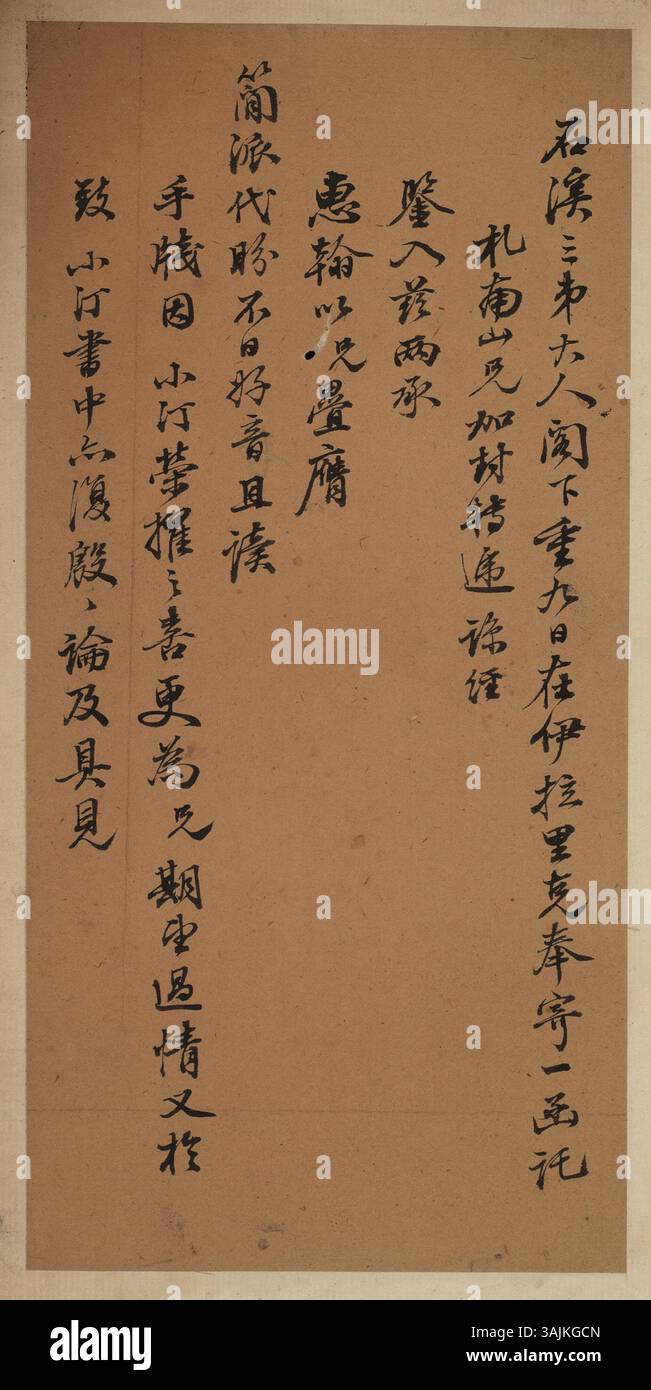 石溪三弟大人阁下重九日在伊拉里克奉寄一函託
札南山兄加封转递谅经
鉴入兹两承
惠翰以兄叠膺
简派代盼不日好音且读
手牋因 小汀荣擢之喜更為兄期望過情又於
致 小汀書中亦復殷殷論及具見
alamy
a
Image ID: 3AJKGCN
www.alamy.com